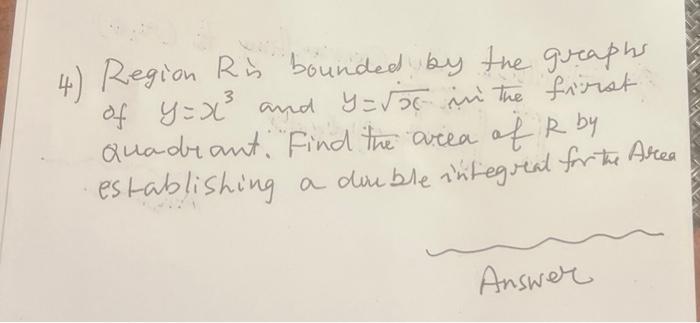 4) Region R is bounded by the graphs
of y=x³ and y=√x in the first
quadrant. Find the area of R by
establishing a double integral for the Area
Answer